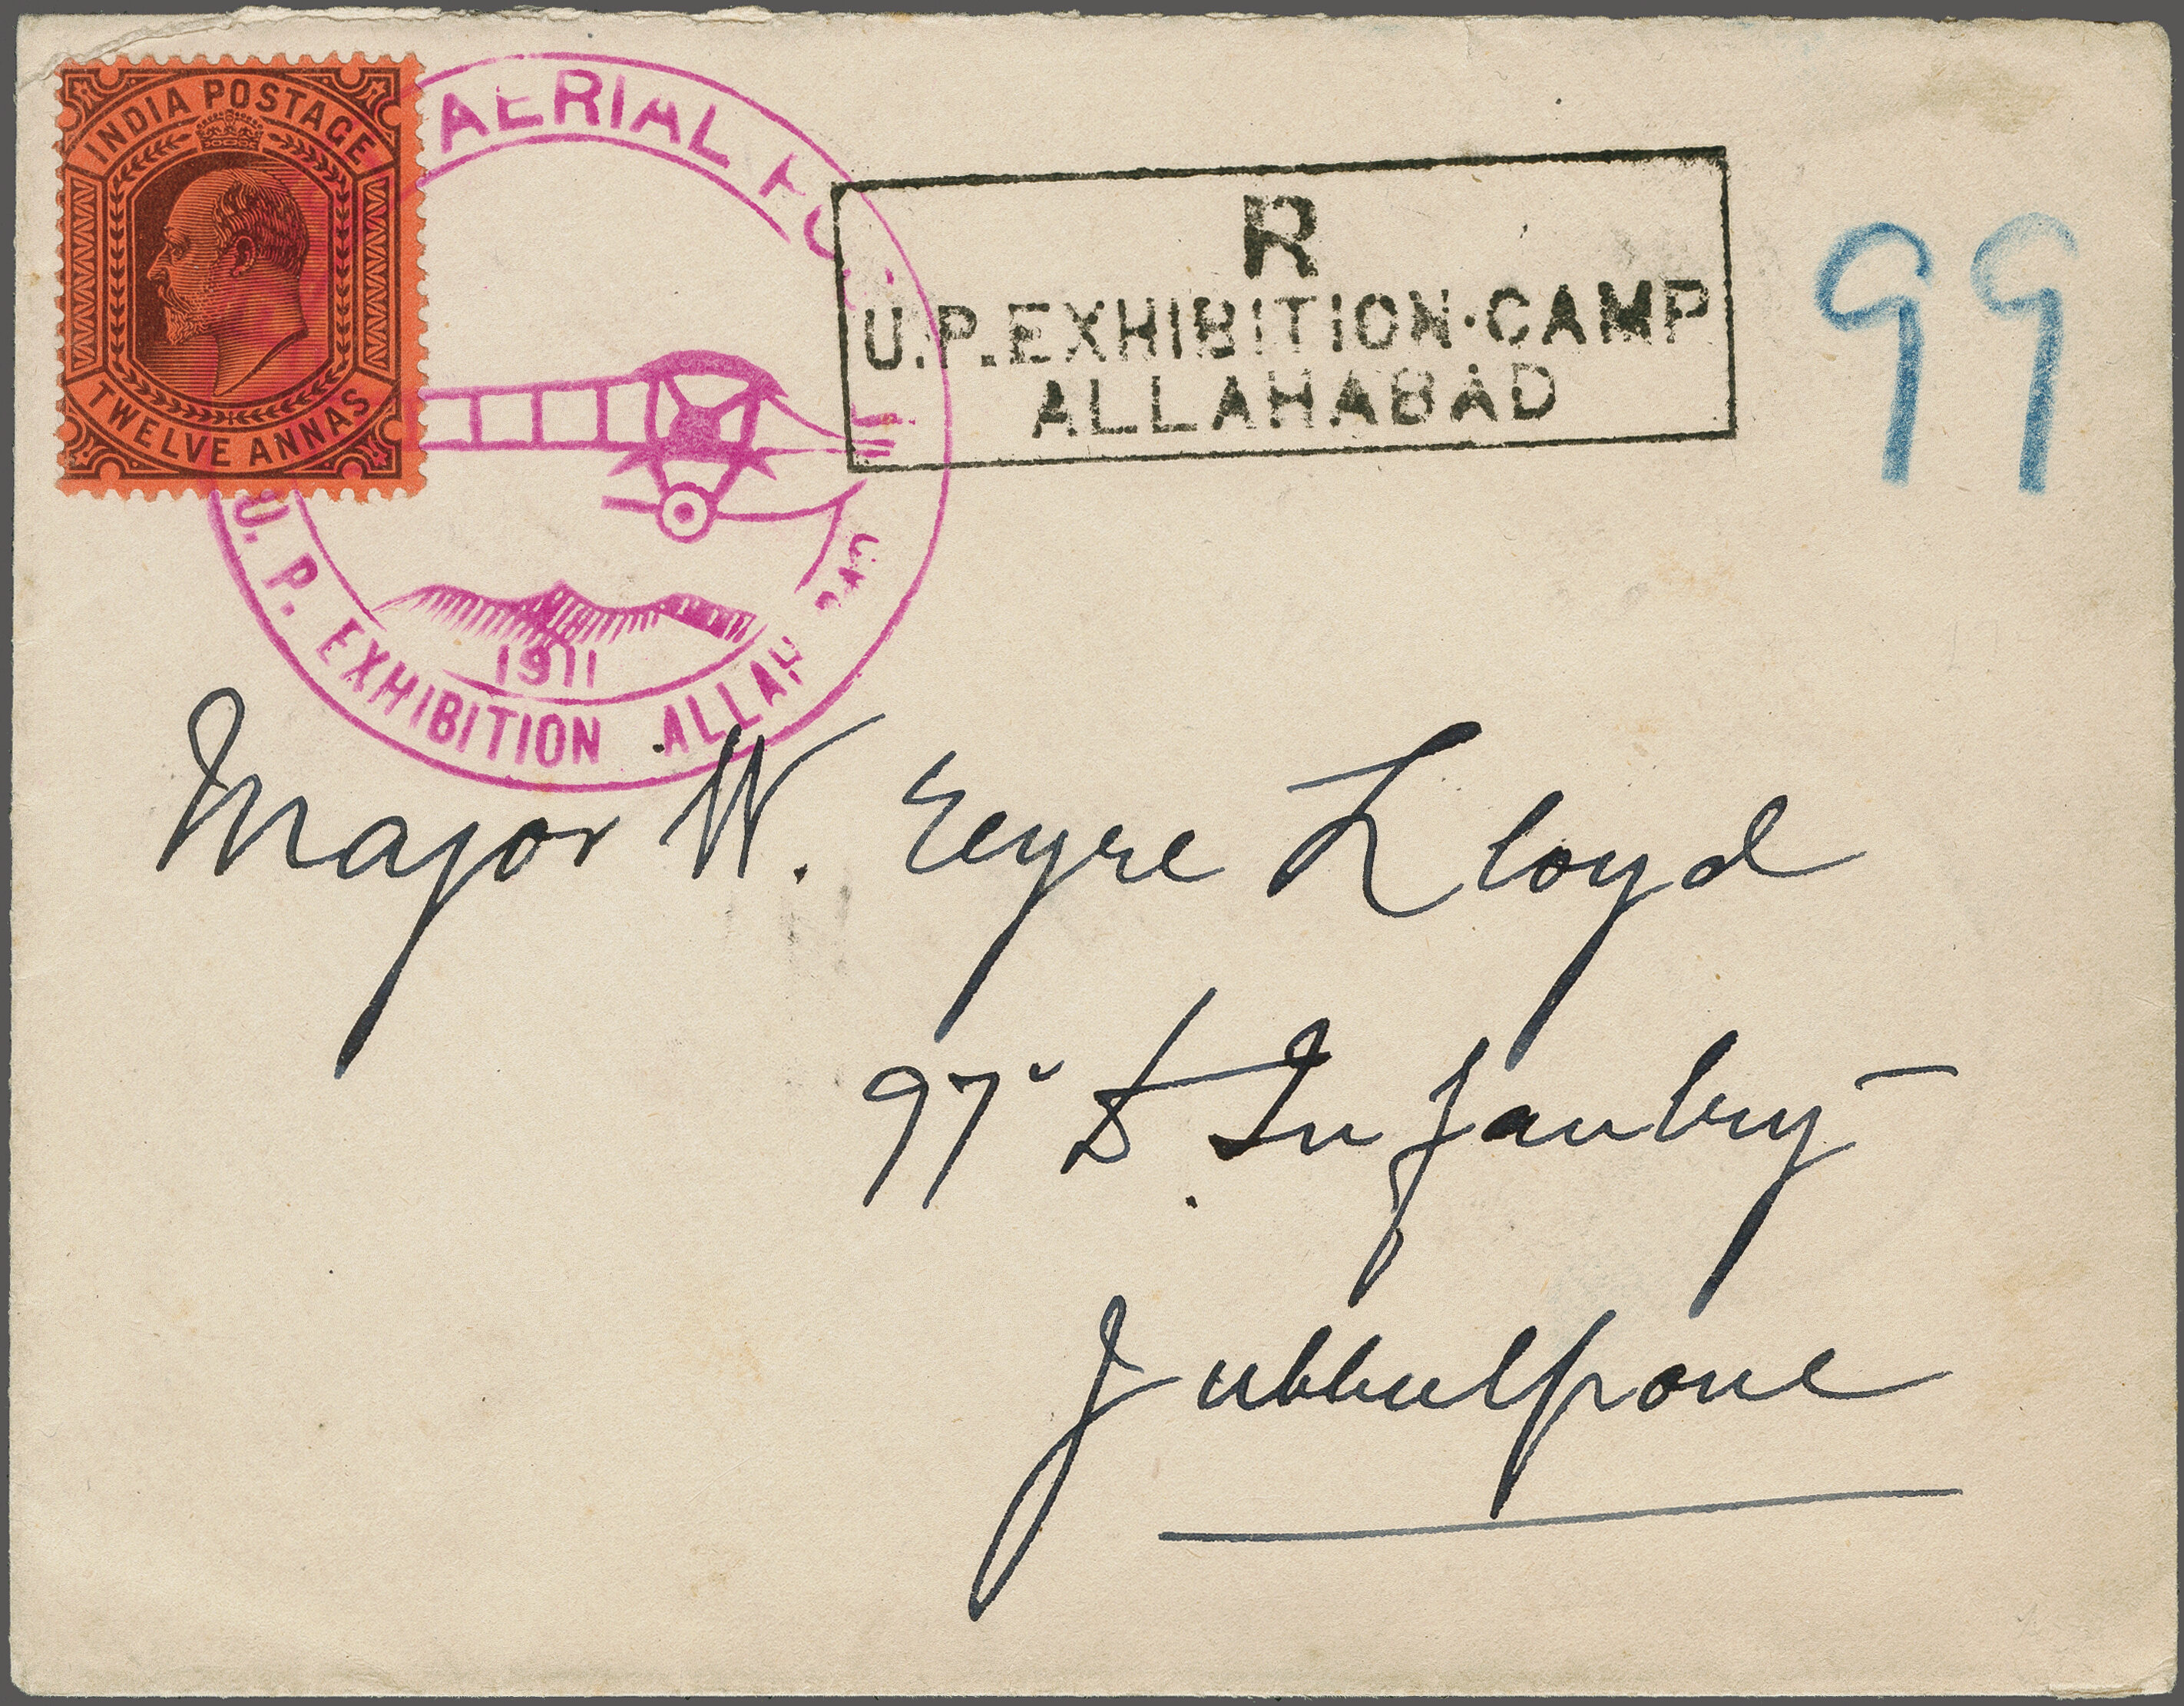 INDIA POSTAGE
TWELVE ANNAS
AERIAL
U. P. EXHIBITION
1911
R
U.P. EXHIBITION·CAMP
ALLAHABAD
99
Major W. Eeyre Lloyd
97th Infantry
Jubbulpore